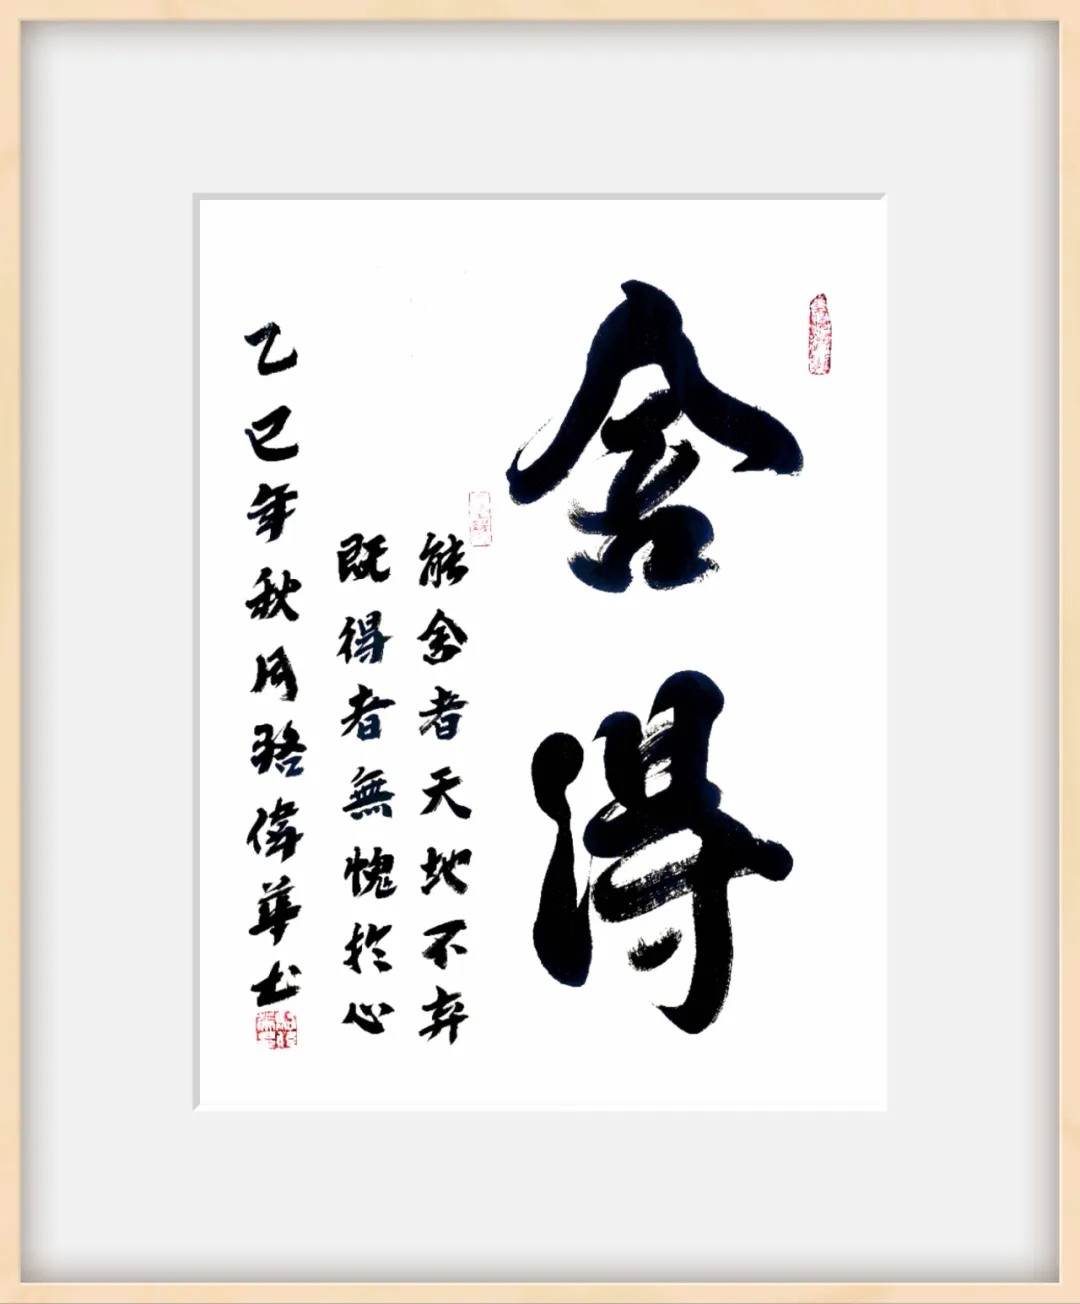 舍得
能舍者天地不弃
既得者無愧於心
乙巳年秋月骆偉華书